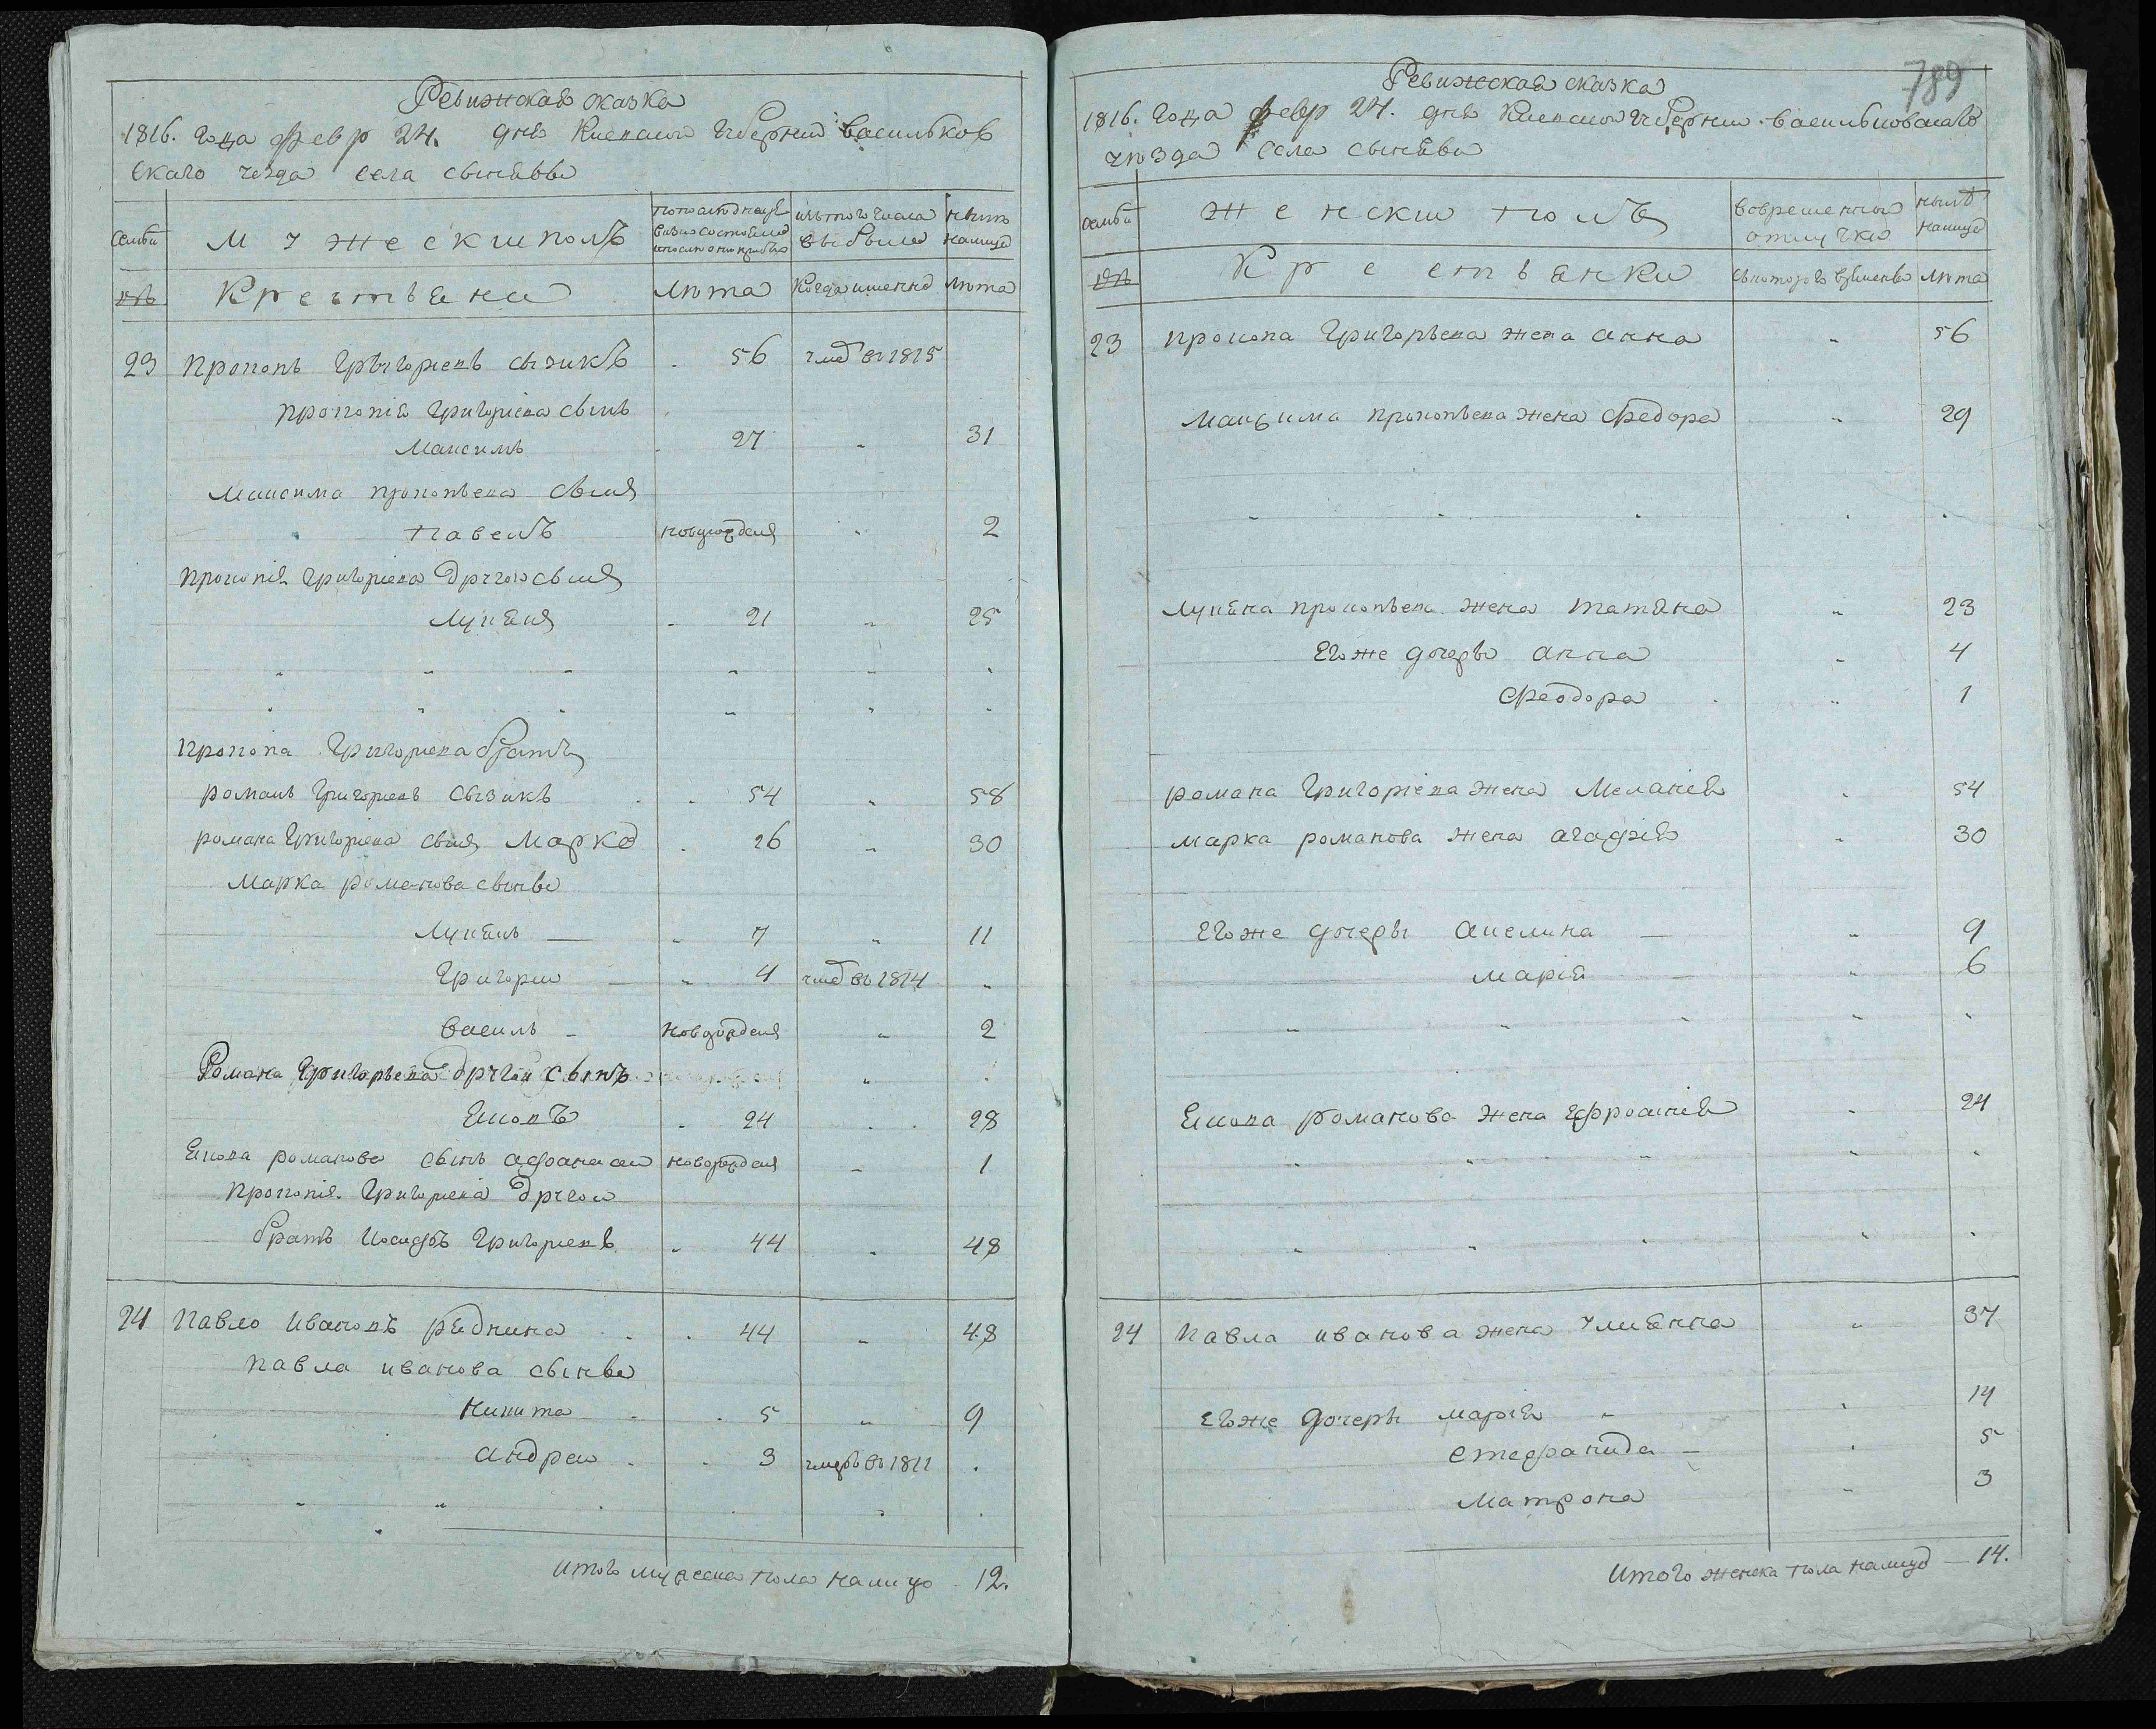 Ревижская сказка
1816. Года февр 24. дня Киевской Губернии васильков
скаго уезда села сынявы
семьи
Мужескииполъ
изътого числа
выбыло
нынѣ
налицо
№
Крестьяне
лѣта
Когда именно
лѣта
23 Прокопъ Григориевъ сызикъ 56 умеръ въ 1815
Прокопія Григориева сынъ
Максимъ 27 „ 31
Максима прокопьева сынъ
Павелъ новорожденъ „ 2
Прокопія Григориева Другои сынъ
Лукянъ 21 „ 25
Прокопа Григориева братъ
романъ Григориевъ Сызикъ 54 „ 58
романа Григориева сынъ Марко 26 „ 30
Марка романова сынве
Лукянъ — 7 „ 11
Григории — „ 4 умеръ въ 1814 „
василь — новорожденъ „ 2
Романа Григорьева другои сынъ „
Якокъ 24 28
Якова романова сынъ афанасии новорожденъ „ 1
Прокопія Григориева Другои
братъ Иосифъ Григориевъ „ 44 „ 48
24 Павло Ивановъ рѣдкина 44 „ 48
Павла иванова сынве
Никита 5 „ 9
андреи 3 умеръ въ 1811
Итого мужеска пола налицо 12.
789
Ревижская сказка
1816. Года февр 24. дня Киевской Губернии васильковскаго
уѣзда села сынявы
семьи
Женскии полъ
вовременной
отлучке
нынѣ
налицо
№
Крестьянки
съкоторого времени
лѣта
23 прокопа Григорьева жена анна „ 56
Максима прокопьева жена Федора „ 29
Лукяна прокопьева жена татяна „ 23
Его же дочеры анна „ 4
Феодора „ 1
романа Григоріева жена Меланія „ 54
марка романова жена агафія „ 30
Его же дочеры акелина — „ 9
марія — „ 6
Якова романова жена Ефросинія „ 24
24 Павла иванова жена улиянна „ 37
Его же дочеры марія „ 14
стефанида — „ 5
матрона „ 3
Итого женска пола налицо — 14.